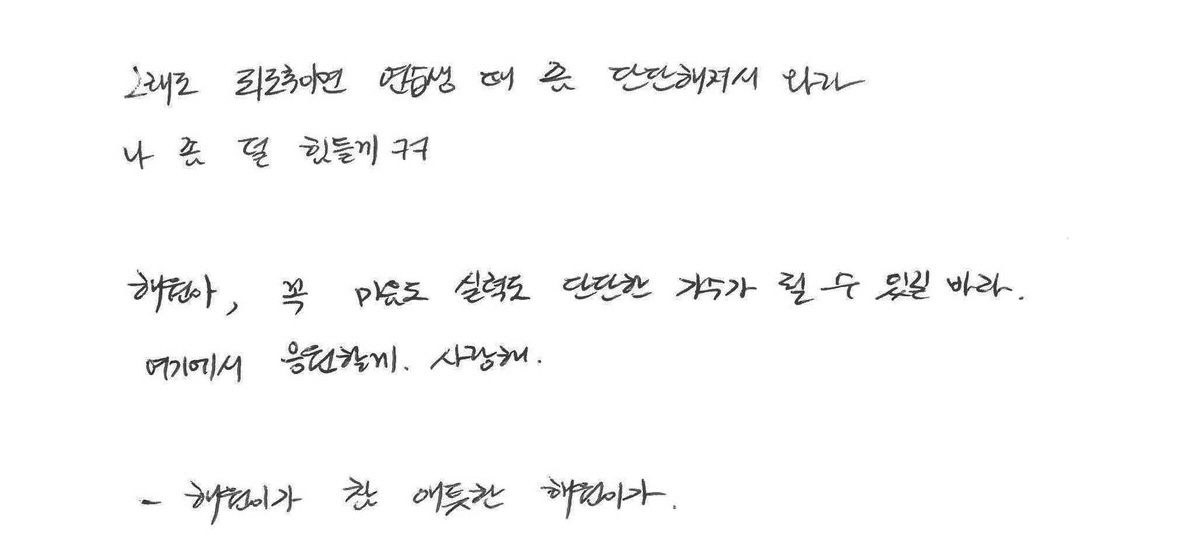 그래도 되도록이면 연습생 때 좀 단단해져서 와라
나 좀 덜 힘들게 ㅋㅋ
해원아, 꼭 마음도 실력도 단단한 가수가 될 수 있길 바라.
여기에서 응원할게. 사랑해.
- 해원이가 참 애틋한 해원이가.